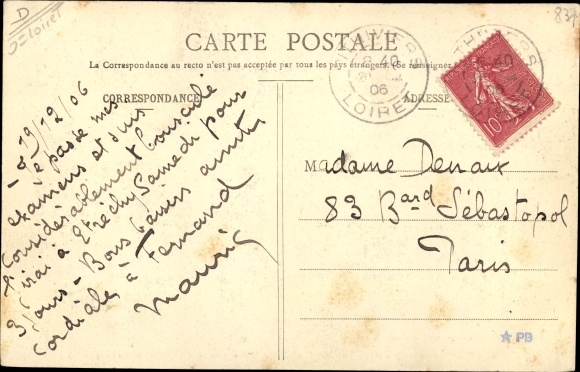 D
Loiret
839
CARTE POSTALE
La Correspondance au recto n'est pas acceptée par tous les pays étrangers. (Se renseigner
CORRESPONDANCE
ADRESSE
THIVIERS
6 40
06
LOIRET
10
19/12/06
Je passe mes
examens et suis
considérablement bousculé
J'irai à Etréchy Samedi pour
3 jours - Bons baisers amitiés
cordiales à Fernand
Maurice
Madame Denaix
83 Bard Sébastopol
Paris
PB